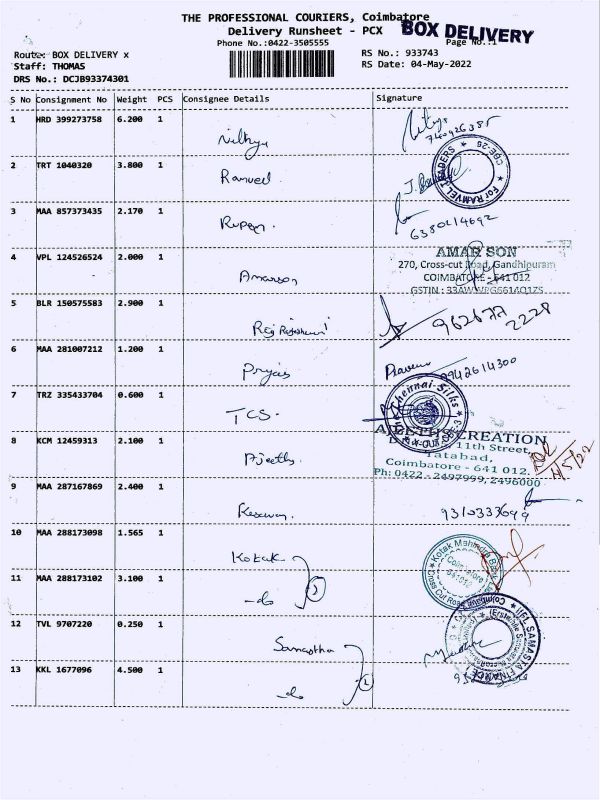 THE PROFESSIONAL COURIERS, Coimbatore
BOX DELIVERY
Delivery Runsheet - PCX
Page No.:1
Phone No.:0422-3505555
Route: BOX DELIVERY x
RS No.: 933743
Staff: THOMAS
RS Date: 04-May-2022
DRS No.: DCJB93374301
S No Consignment No Weight PCS Consignee Details Signature
1 HRD 399273758 6.200 1 Nithya
2 TRT 1040320 3.800 1 Ramvel
For RAMVEL TRADERS ★ CBE-26 ★
3 MAA 857373435 2.170 1 Rupen.
4 VPL 124526524 2.000 1 Amarson
AMAR SON
270, Cross-cut Road, Gandhipuram
COIMBATORE - 641 012
GSTIN :
5 BLR 150575583 2.900 1 Raj Rajeshwari
6 MAA 281007212 1.200 1 Praveen 9942614300
7 TRZ 335433704 0.600 1 TCS.
The Chennai Silks
8 KCM 12459313 2.100 1 Ajeeths
CREATION
11th Street,
Tatabad,
Coimbatore - 641 012.
Ph: 0422 - 2497999, 2496000
9 MAA 287167869 2.400 1 Kesavan.
10 MAA 288173098 1.565 1 Kotak
Kotak Mahindra Bank
Cross Cut Road
Coimbatore
641012
11 MAA 288173102 3.100 1 -do 2
12 TVL 9707220 0.250 1 Samastha
IIFL SAMASTA FINANCE
13 KKL 1677096 4.500 1 -do 2